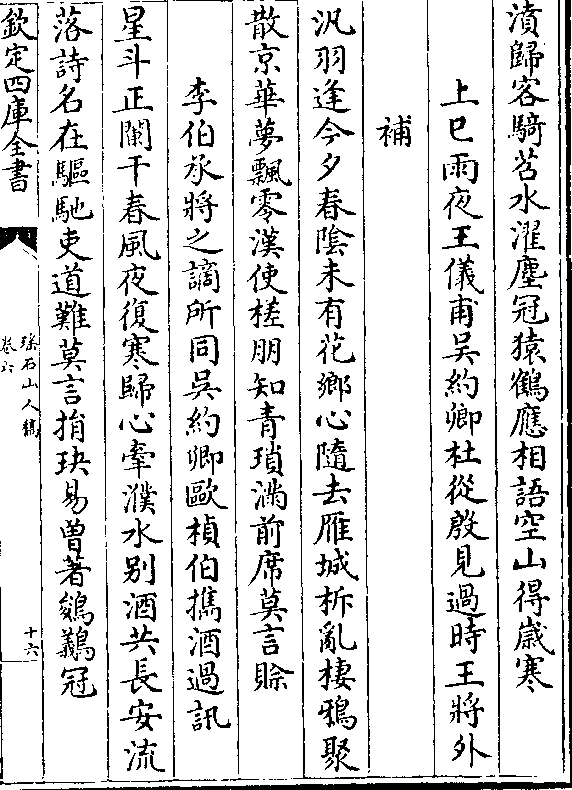 濆歸客騎苕水濯塵冠猿鶴應相語空山得歲寒
上巳雨夜王儀甫吳約卿杜從殷見過時王將外
補
汎羽逢今夕春陰未有花鄉心隨去雁城柝亂棲鴉聚
散京華夢飄零漢使槎朋知青瑣滿前席莫言賖
李伯承將之謫所同吳約卿歐楨伯攜酒過訊
星斗正闌干春風夜復寒歸心牽濮水别酒共長安流
落詩名在驅馳吏道難莫言捐玦易曽著鵕鸃冠
欽定四庫全書
瑤石山人稿
卷六
十六